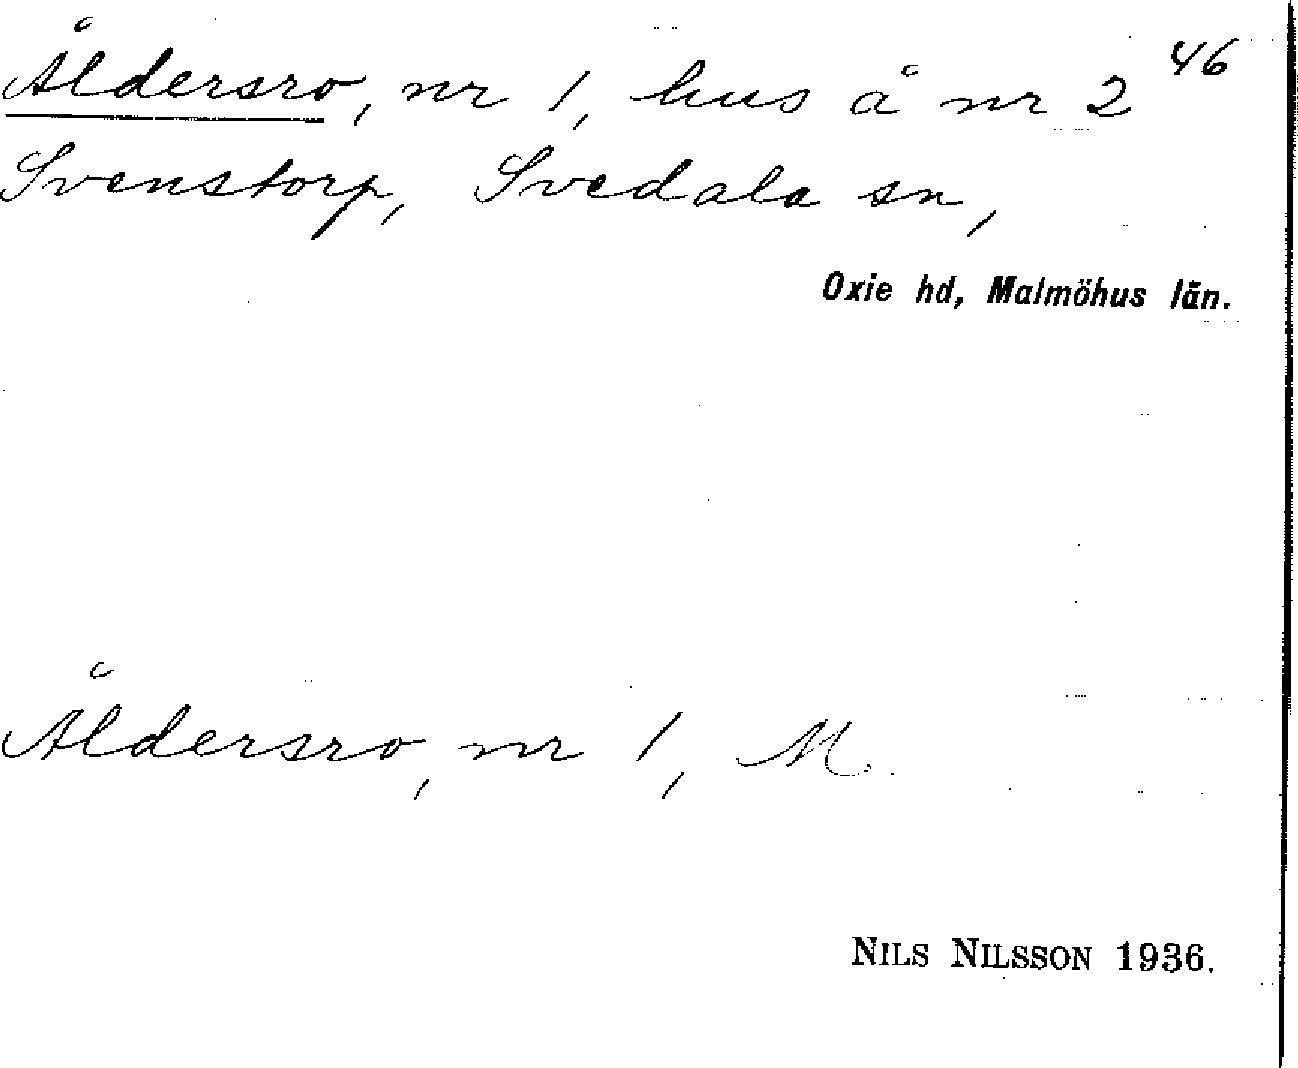 Åldersro, nr 1, hus å nr 2 46
Svenstorp, Svedala sn,
Oxie hd, Malmöhus län.
Åldersro, nr 1, M.
NILS NILSSON 1936.